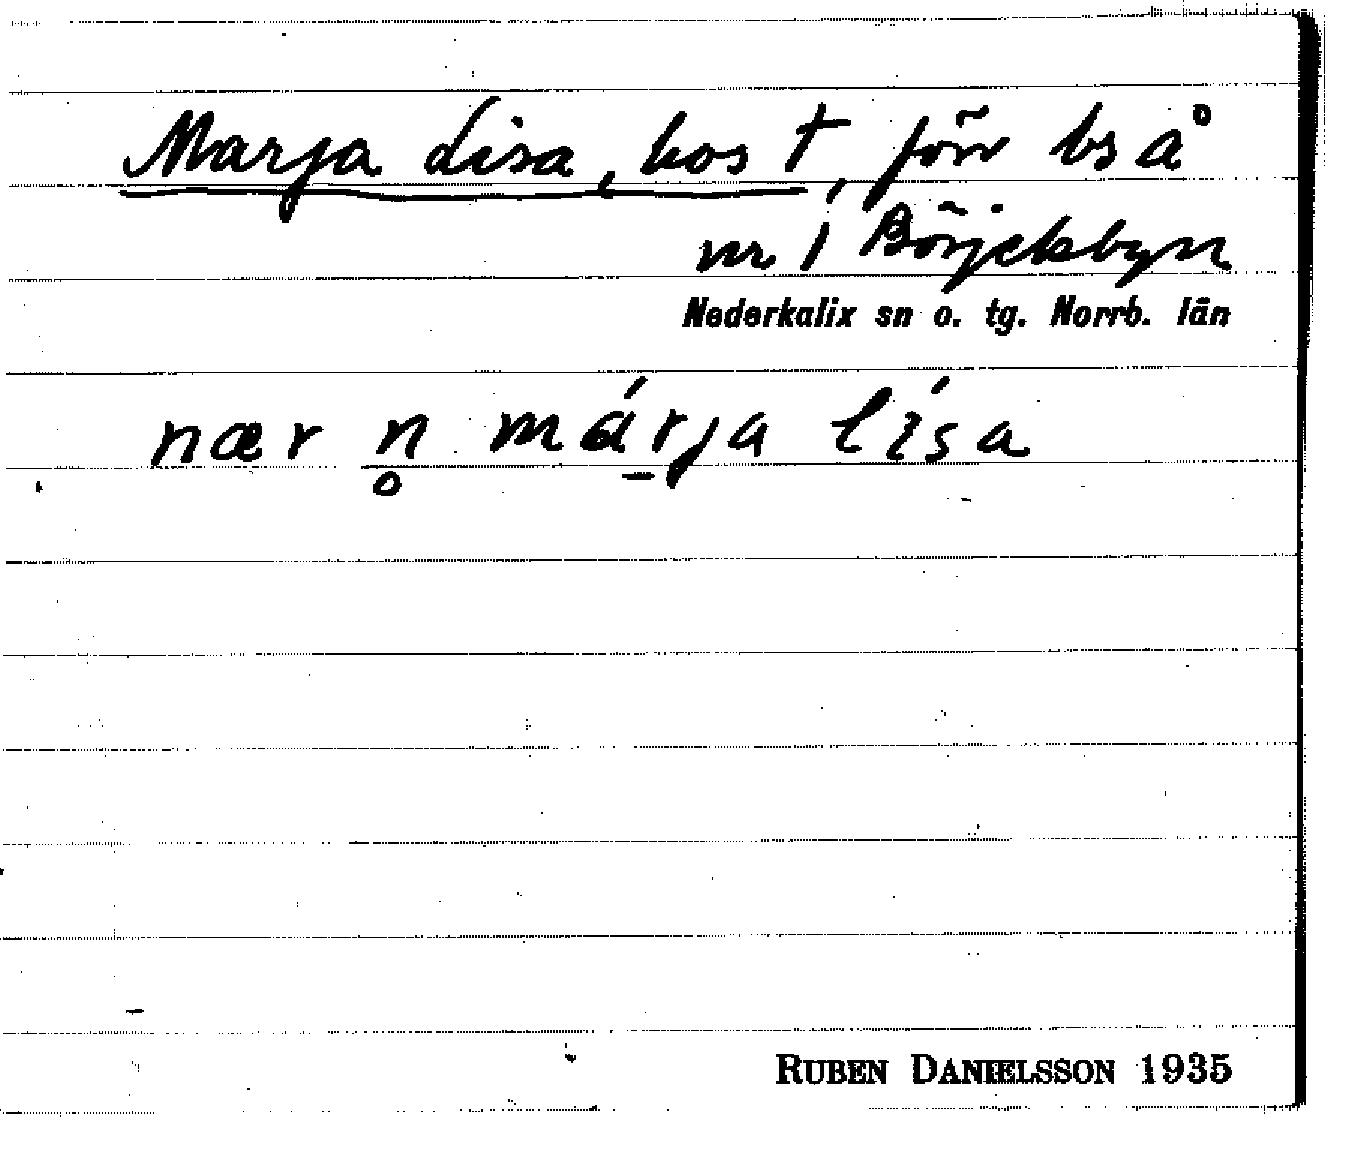 Marja Lisa, hos †, förr bs å
nr 1 Börjelsbyn
Nederkalix sn o. tg. Norrb. län
nær n̥ má̱rja lísa
RUBEN DANIELSSON 1935